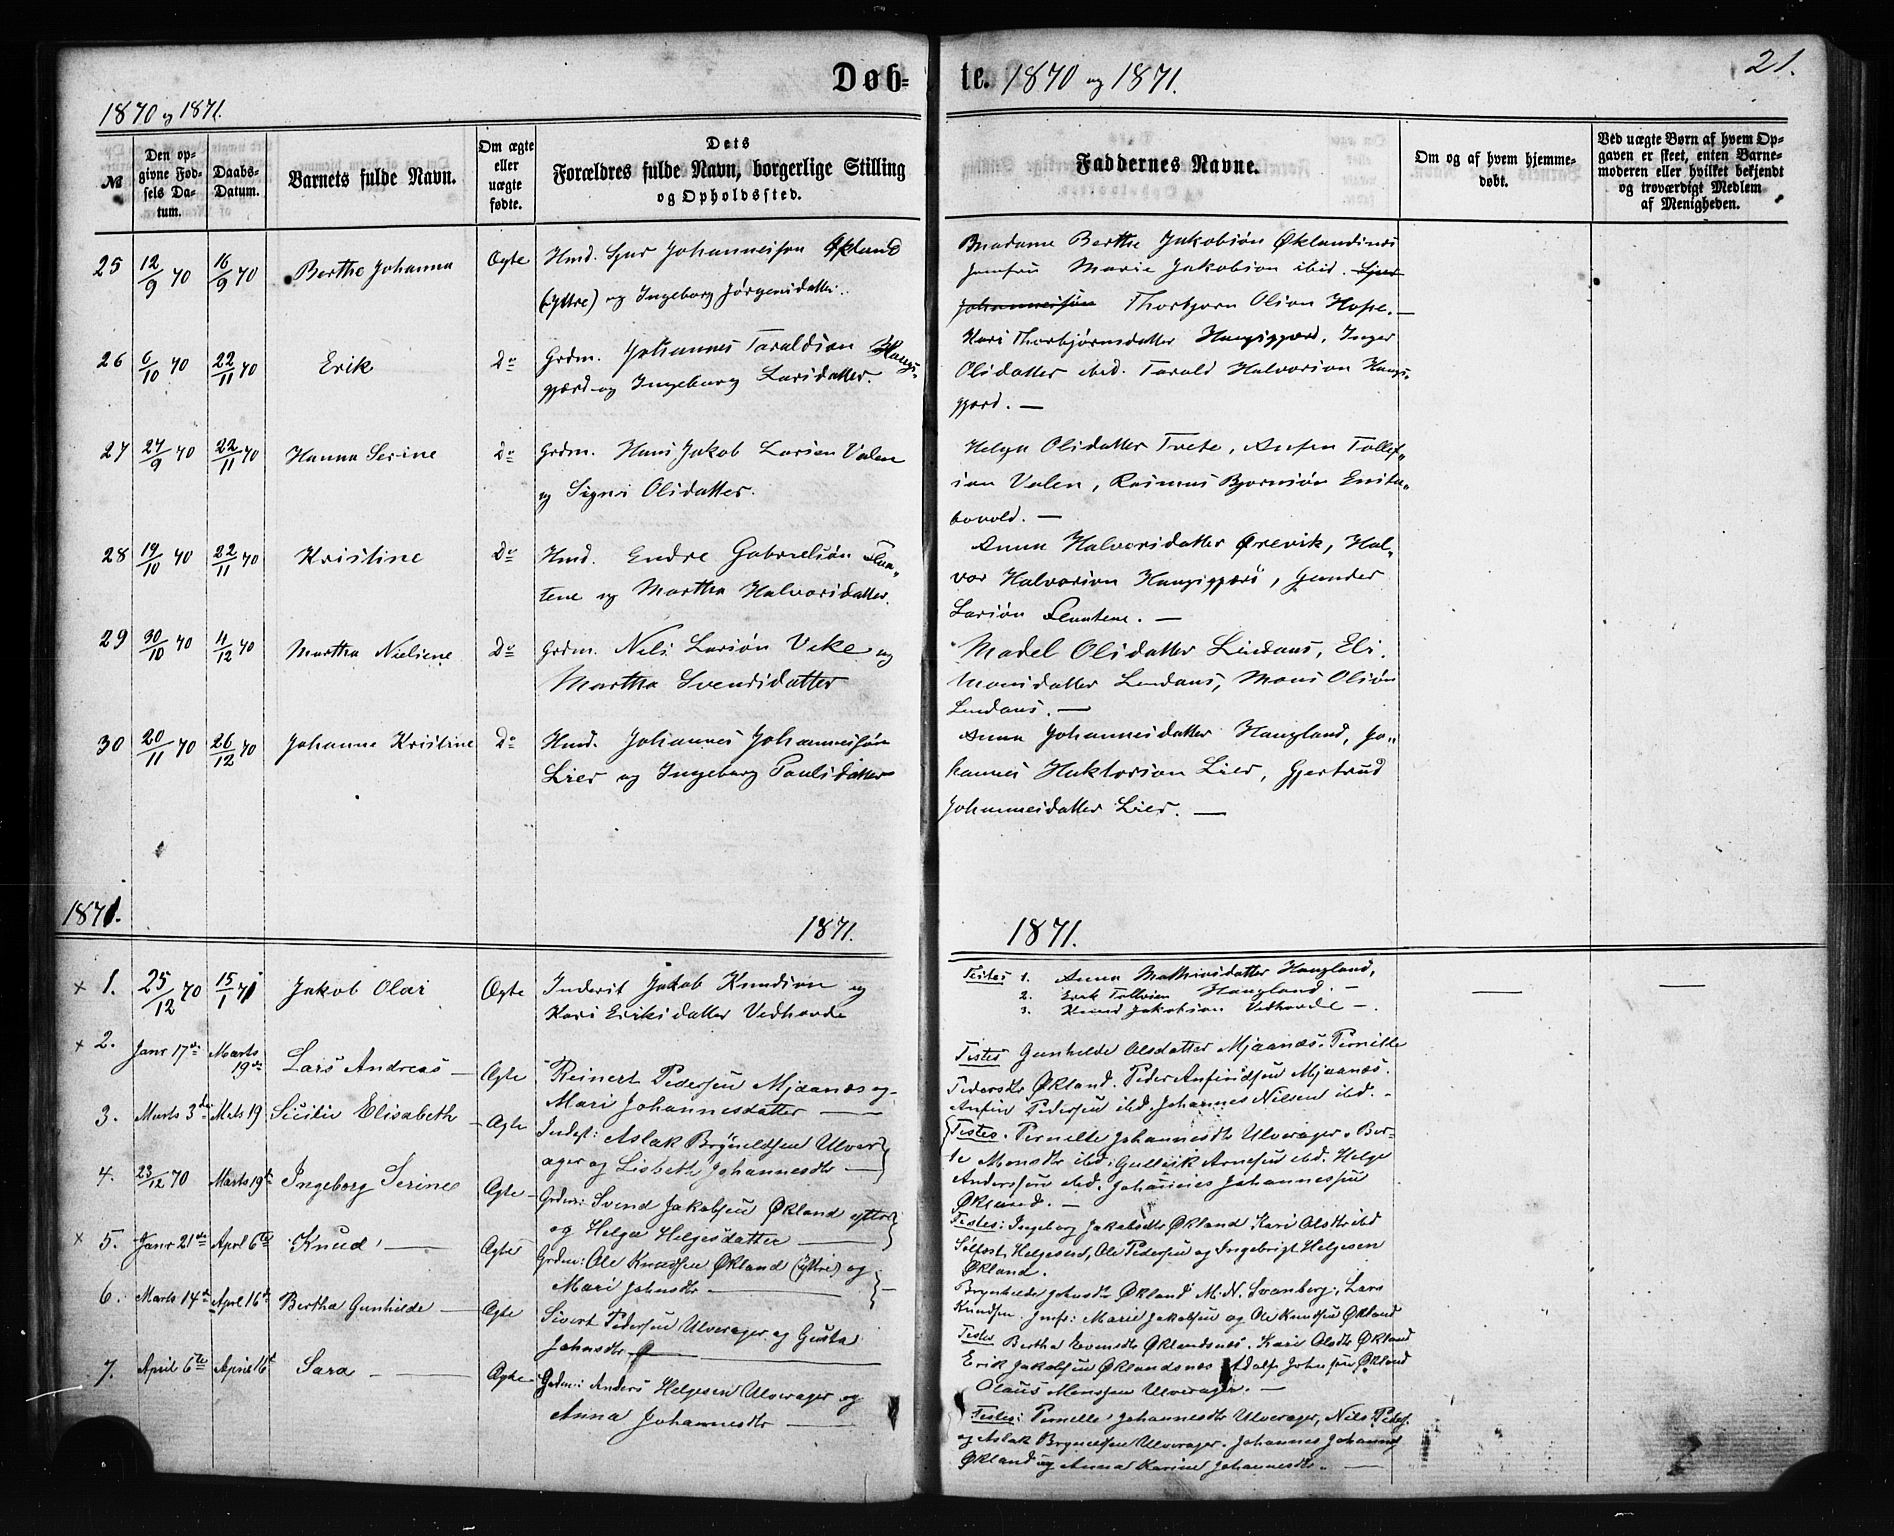 Døb-
te. 1870 og 1871.
21.
1870 og 1871.
№
Den op-
givne Fød-
sels Da-
tum.
Daabs-
Datum.
Barnets fulde Navn.
Om ægte
eller
uægte
fødte.
Dets
Forældres fulde Navn, borgerlige Stilling
og Opholdssted.
Faddernes Navne.
Om og af hvem hjemme-
døbt.
Ved uægte Børn af hvem Op-
gaven er skeet, enten Barne-
moderen eller hvilket bekjendt
og troværdigt Medlem
af Menigheden.
25 12/9 70 16/9 70 Berthe Johanna Ægte Hmd. Sjur Johannesson Økland
(yttre) og Ingeborg Jørgensdatter.
Madame Berthe Jakobsøn Øklandsnæs
Jomfru Marie Jakobson ibid. Sjur
Johannessøn Thorbjørn Olson Hope. —
26 6/10 70 22/11 70 Erik Do Grdm. Johannes Taraldson Haugs-
gjærd og Ingeborg Larsdatter.
Kari Thorbjørnsdatter Haugsgjærd, Inger
Olsdatter ibid. Tarald Halvorson Haugs-
gjærd. —
27 27/9 70 22/11 70 Hanna Serine Do Grdm. Hans Jakob Larsen Valen
og Signi Olsdatter.
Helga Olsdatter Tvete, Anfin Tollef-
son Valen, Rasmus Bjørnsøn
28 19/10 70 22/11 70 Kristine Do Hmd. Endre Gabrielsøn Fluu-
tene og Martha Halvorsdatter.
Anna Halvorsdatter Ørevik, Hal-
vor Halvorson Haugsgjærd, Gunder
Larsøn
29 30/10 70 4/12 70 Martha Nieliene Do Grdm. Nils Larsøn Vike og
Martha Svendsdatter
Madel Olsdatter Lindaas, Eli
Monsdatter Lindaas, Mons Olsøn
Lindaas. —
30 20/11 70 26/12 70 Johanne Kristine Do Hmd. Johannes Johannessøn
Lier og Ingeborg Poulsdatter
Anna Johannesdatter Haugland, Jo-
hannes Haktorson Lier, Gjertrud
Johannesdatter Lier. —
1871.
1871.
1871.
x 1. 25/12 70 15/1 71 Jakob Olai Ægte Inderst Jakob Knudson og
Kari Eriksdatter Vedhovde
Testes 1. Anna Mathiasdatter Haugland,
2. Erik Tollevsen Haugland. —
3. Knud Jakobson Vedhovde —.
x 2. Janr 17de Marts 19de Lars Andreas — Ægte Reinert Pedersen Mjaanæs og
Mari Johannesdatter —
Testes Gunhilde Olsdatter Mjaanæs. Pernille
Pedersdtr Økland. Peder Anfindsen Mjaanæs.
Anfin Pedersen ibd. Johannes Nilsen ibd. -
3. Marts 3die Mts 19 Sicilie Elisabeth — Ægte Inderst: Aslak Brynildsen Ulver-
ager og Lisbeth Johannesdtr —
Testes. Pernille Johannesdtr Ulverager. Ber-
te Monsdtr ibd. Gullik Arnesen ibd. Helge
Andersen ibd. Johannes Johannessen
Økland. —
4. 23/12 70 Marts 19de Ingeborg Serine Ægte — Grdm: Svend Jakobsen Økland yttre
og Helga Helgesdatter —
Testes: Ingeborg Jakobsdtr Økland Kari Olsdtr ibd
Sølfæst Helgesen, Ole Pedersen og Ingebrigt Helgesen
Økland.
x 5. Janr 21de Aprl 6te Knud — Ægte Grdm: Ole Knudsen Økland (yttre) og
Mari Johnsdtr —
Brynhilde Johnsdtr Økland M. N. Svanberg, Lars
Knudsen. Jmfr: Marie Jakobsen og Ole Knudsen Økland
6. Marts 14de Aprl 16de Bertha Gunhilde — Ægte Sivert Pedersen Ulverager og Gusta
Johnsdtr —
Testes Bertha Evensdtr Øklandsnæs. Kari Olsdtr Økland
Erik Jakobsen Øklandsnæs Adolf Johnsen Økland
Olaus Monssen Ulverager. —
7. April 6te April 16de Sara — Ægte Grdm: Anders Helgesen Ulverager og
Anna Johannesdtr —
Testes: Pernille Johannesdtr Ulverager, Nils Peders.
og Aslak Brynildsen Ulverager. Johannes Johannes
Økland og Anna Karine Johannesdtr. —